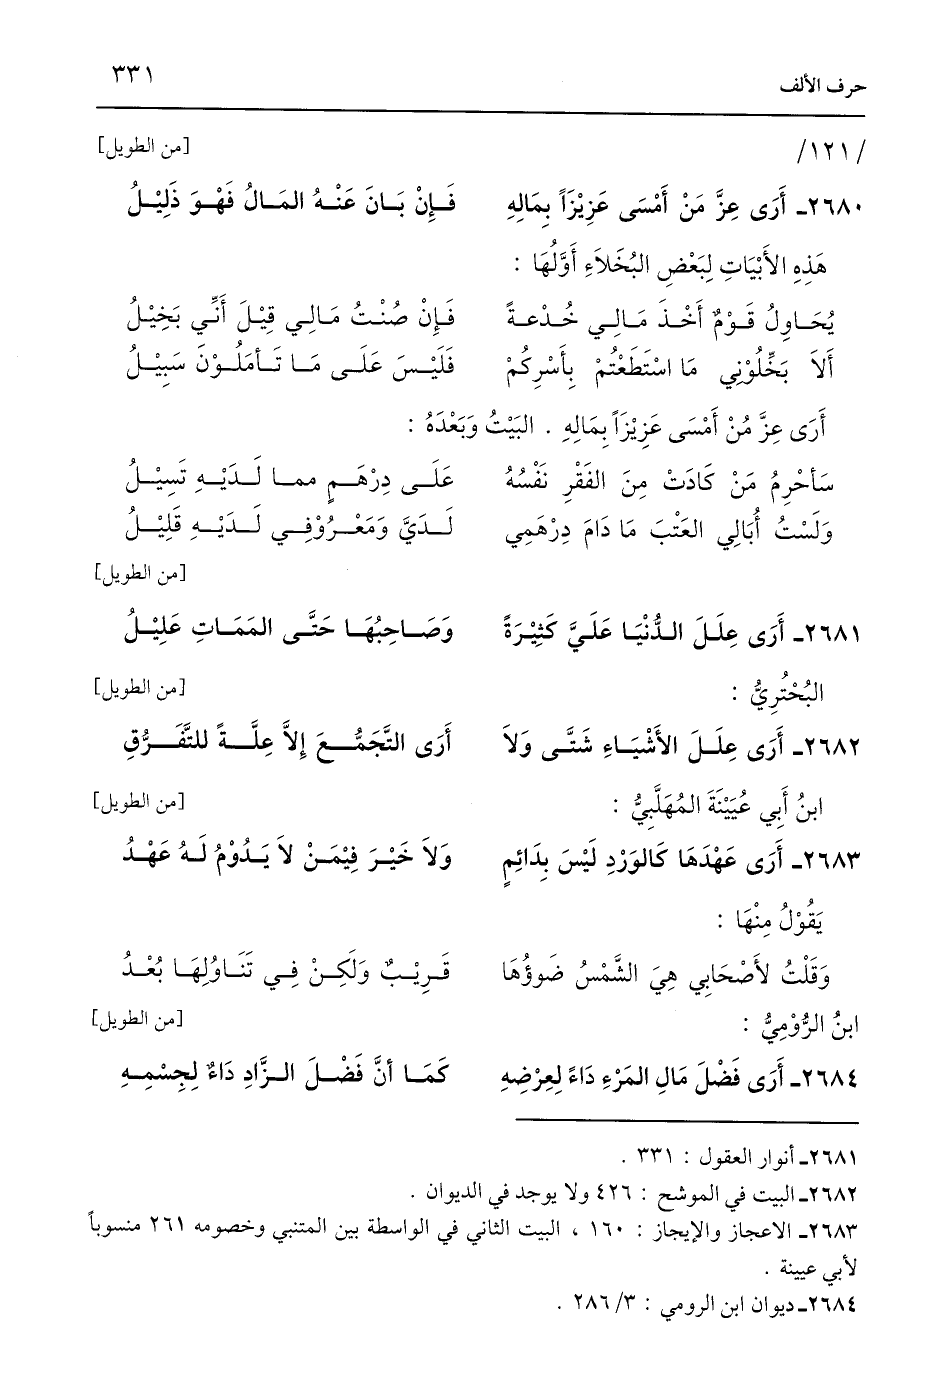 حرف الألف ٣٣١
/١٢١/ [من الطويل]
٢٦٨٠ـ أَرَى عِزَّ مَنْ أَمْسَى عَزِيْزَاً بِمَالِهِ فَـإِنْ بَـانَ عَنْـهُ المَـالُ فَهْـوَ ذَلِيْـلُ
هَذِهِ الأَبْيَاتِ لِبَعْضِ البُخَلاَءِ أَوَّلُهَا :
يُحَـاوِلُ قَـوْمٌ أخْـذَ مَـالِـي خُـدعَـةً فَـإِنْ صُنْـتُ مَـالِي قِيْـلَ أَنِّـي بَخِيْـلُ
أَلاَ بَخِّلُوْنِي مَا اسْتَطَعْتُمْ بِأَسْرِكُمْ فَلَيْـسَ عَلَـى مَـا تَـأمَلُـوْنَ سَبِيْـلُ
أَرَى عِزَّ مُنْ أَمْسَى عَزِيْزَاً بِمَالِهِ . البَيْتُ وَبَعْدَهُ :
سَأحْرِمُ مَنْ كَادَتْ مِنَ الفَقْرِ نَفْسُهُ عَلَـى دِرْهَـمٍ ممـا لَـدَيْـهِ تَسِيْـلُ
وَلَسْتُ أُبَالِي العَتْبَ مَا دَامَ دِرْهَمِي لَـدَيَّ وَمَعْـرُوْفِـي لَـدَيْـهِ قَلِيْـلُ
[من الطويل]
٢٦٨١ـ أَرَى عِلَلَ الدُّنْيَا عَلَيَّ كَثِيْرَةً وَصَـاحِبُهَـا حَتَّـى المَمَـاتِ عَلِيْـلُ
البُحْتُرِيُّ : [من الطويل]
٢٦٨٢ـ أَرَى عِلَـلَ الأَشْيَـاءِ شَتَّـى وَلاَ أَرَى التَّجَمُّـعَ إِلاَّ عِلَّـةً للتَّفَـرُّقِ
ابنُ أَبِي عُيَيْنَةَ المُهَلَّبِيُّ : [من الطويل]
٢٦٨٣ـ أَرَى عَهْدَهَا كَالوَرْدِ لَيْسَ بِدَائِمٍ وَلاَ خَيْـرَ فِيْمَـنْ لاَ يَـدُوْمُ لَـهُ عَهْـدُ
يَقُوْلُ مِنْهَا :
وَقَلْتُ لأَصْحَابِي هِيَ الشَّمْسُ ضَوؤُهَا قَـرِيْـبٌ وَلَكِـنْ فِـي تَنَـاوُلِهَـا بُعْـدُ
ابنُ الرُّوْمِيُّ : [من الطويل]
٢٦٨٤ـ أَرَى فَضْلَ مَالِ المَرْءِ دَاءً لِعِرْضِهِ كَمَـا أنَّ فَضْـلَ الـزَّادِ دَاءٌ لِجِسْمِـهِ
٢٦٨١ـ أنوار العقول : ٣٣١ .
٢٦٨٢ـ البيت في الموشح : ٤٢٦ ولا يوجد في الديوان .
٢٦٨٣ـ الاعجاز والإيجاز : ١٦٠ ، البيت الثاني في الواسطة بين المتنبي وخصومه ٢٦١ منسوباً
لأبي عيينة .
٢٦٨٤ـ ديوان ابن الرومي : ٣/ ٢٨٦ .